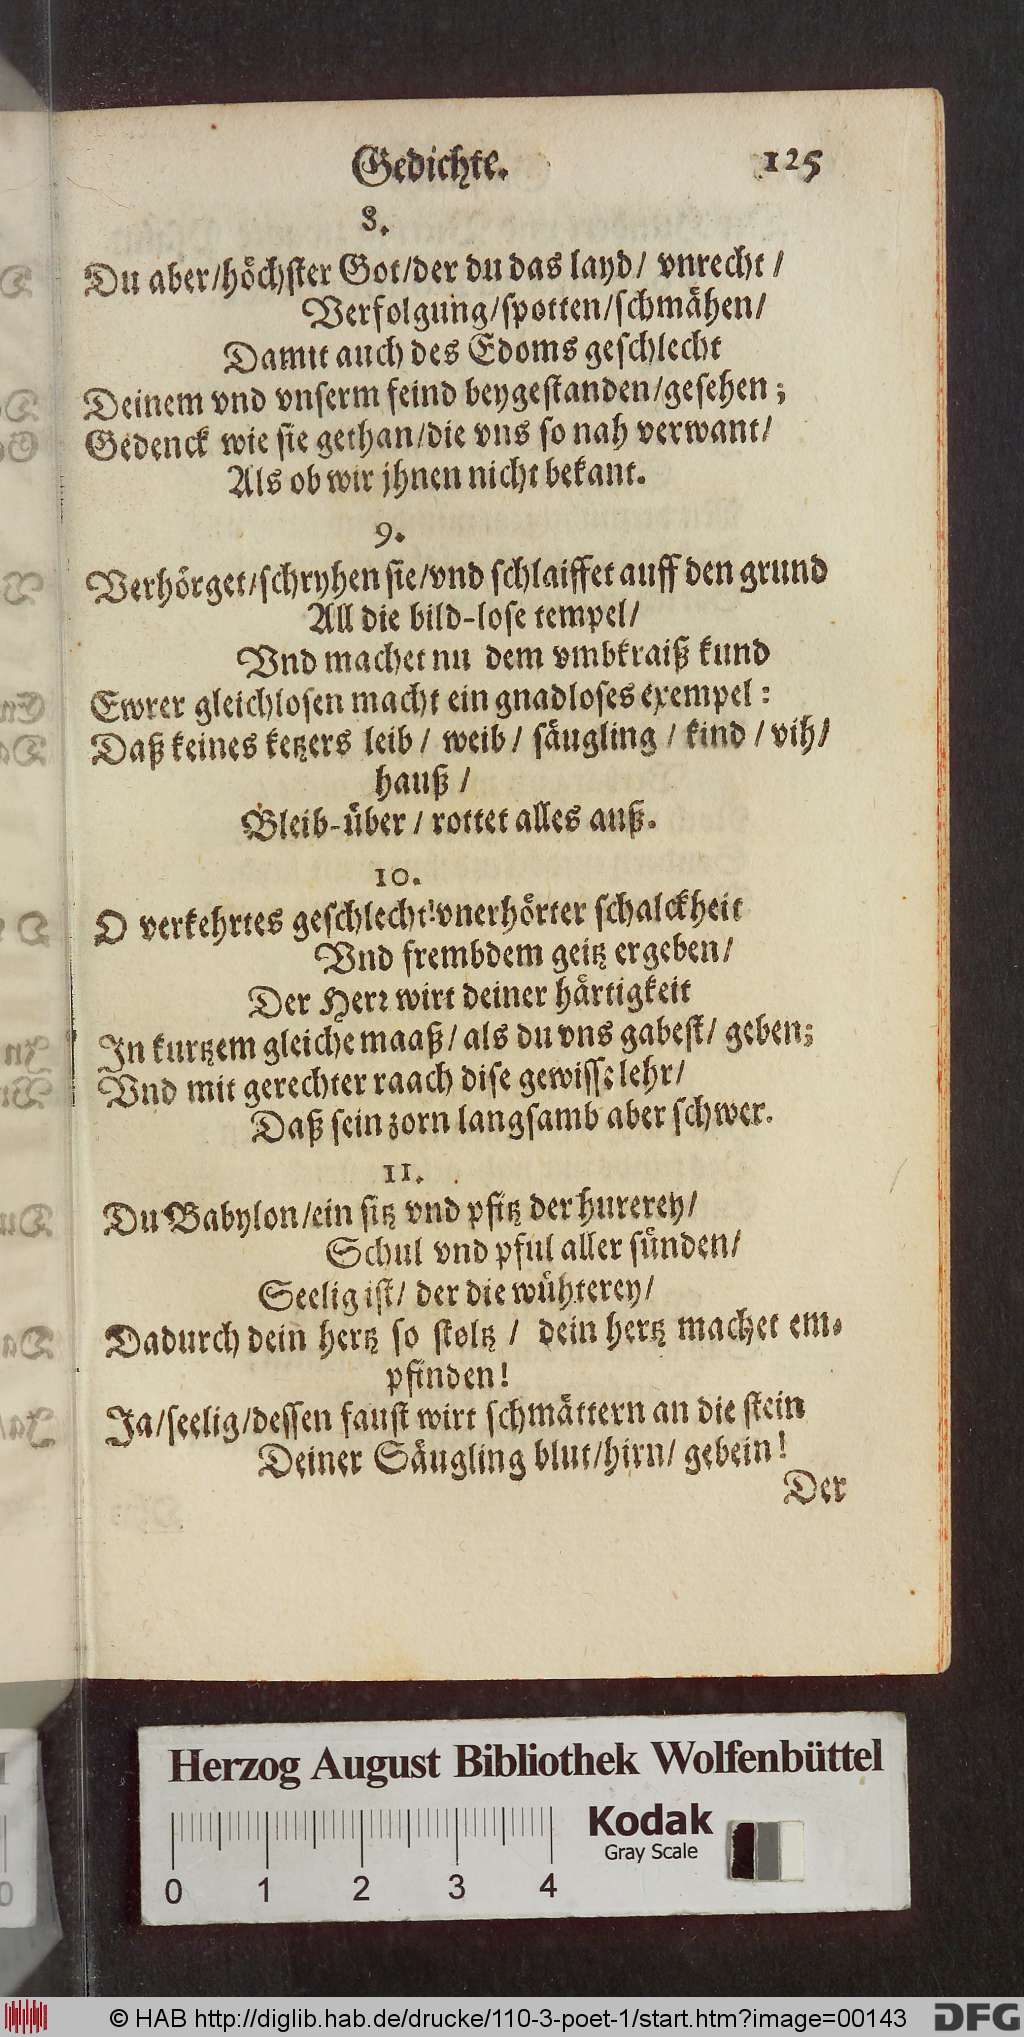 Gedichte. 125
8.
Du aber/höchster Got/der du das layd/ vnrecht /
Verfolgung/spotten/schmähen/
Damit auch des Edoms geschlecht
Deinem vnd vnserm feind beygestanden/gesehen;
Gedenck wie sie gethan/die vns so nah verwant/
Als ob wir jhnen nicht bekant.
9.
Verhörget/schryhen sie/vnd schlaiffet auff den grund
All die bild-lose tempel/
Vnd machet nu dem vmbkraiß kund
Ewrer gleichlosen macht ein gnadloses exempel:
Daß keines ketzers leib / weib / säugling / kind / vih/
hauß /
Bleib-über / rottet alles auß.
10.
O verkehrtes geschlecht!vnerhörter schalckheit
Vnd frembdem geitz ergeben/
Der Herr wirt deiner härtigkeit
In kurtzem gleiche maaß/ als du vns gabest/ geben;
Vnd mit gerechter raach dise gewisse lehr/
Daß sein zorn langsamb aber schwer.
11.
Du Babylon/ein sitz vnd pfitz der hurerey/
Schul vnd pful aller sünden/
Seelig ist/ der die wühterey/
Dadurch dein hertz so stoltz / dein hertz machet em-
pfinden!
Ja/seelig/dessen faust wirt schmättern an die stein
Deiner Säugling blut/hirn/ gebein!
Der
Herzog August Bibliothek Wolfenbüttel
Kodak
Gray Scale
0 1 2 3 4
© HAB http://diglib.hab.de/drucke/110-3-poet-1/start.htm?image=00143
DFG